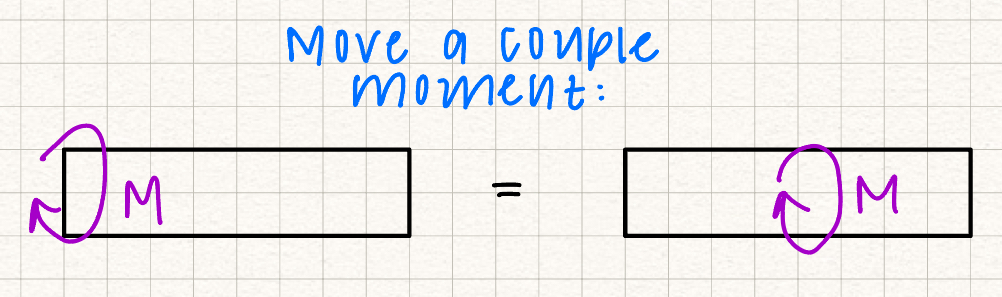 Move a couple
moment:
M = M